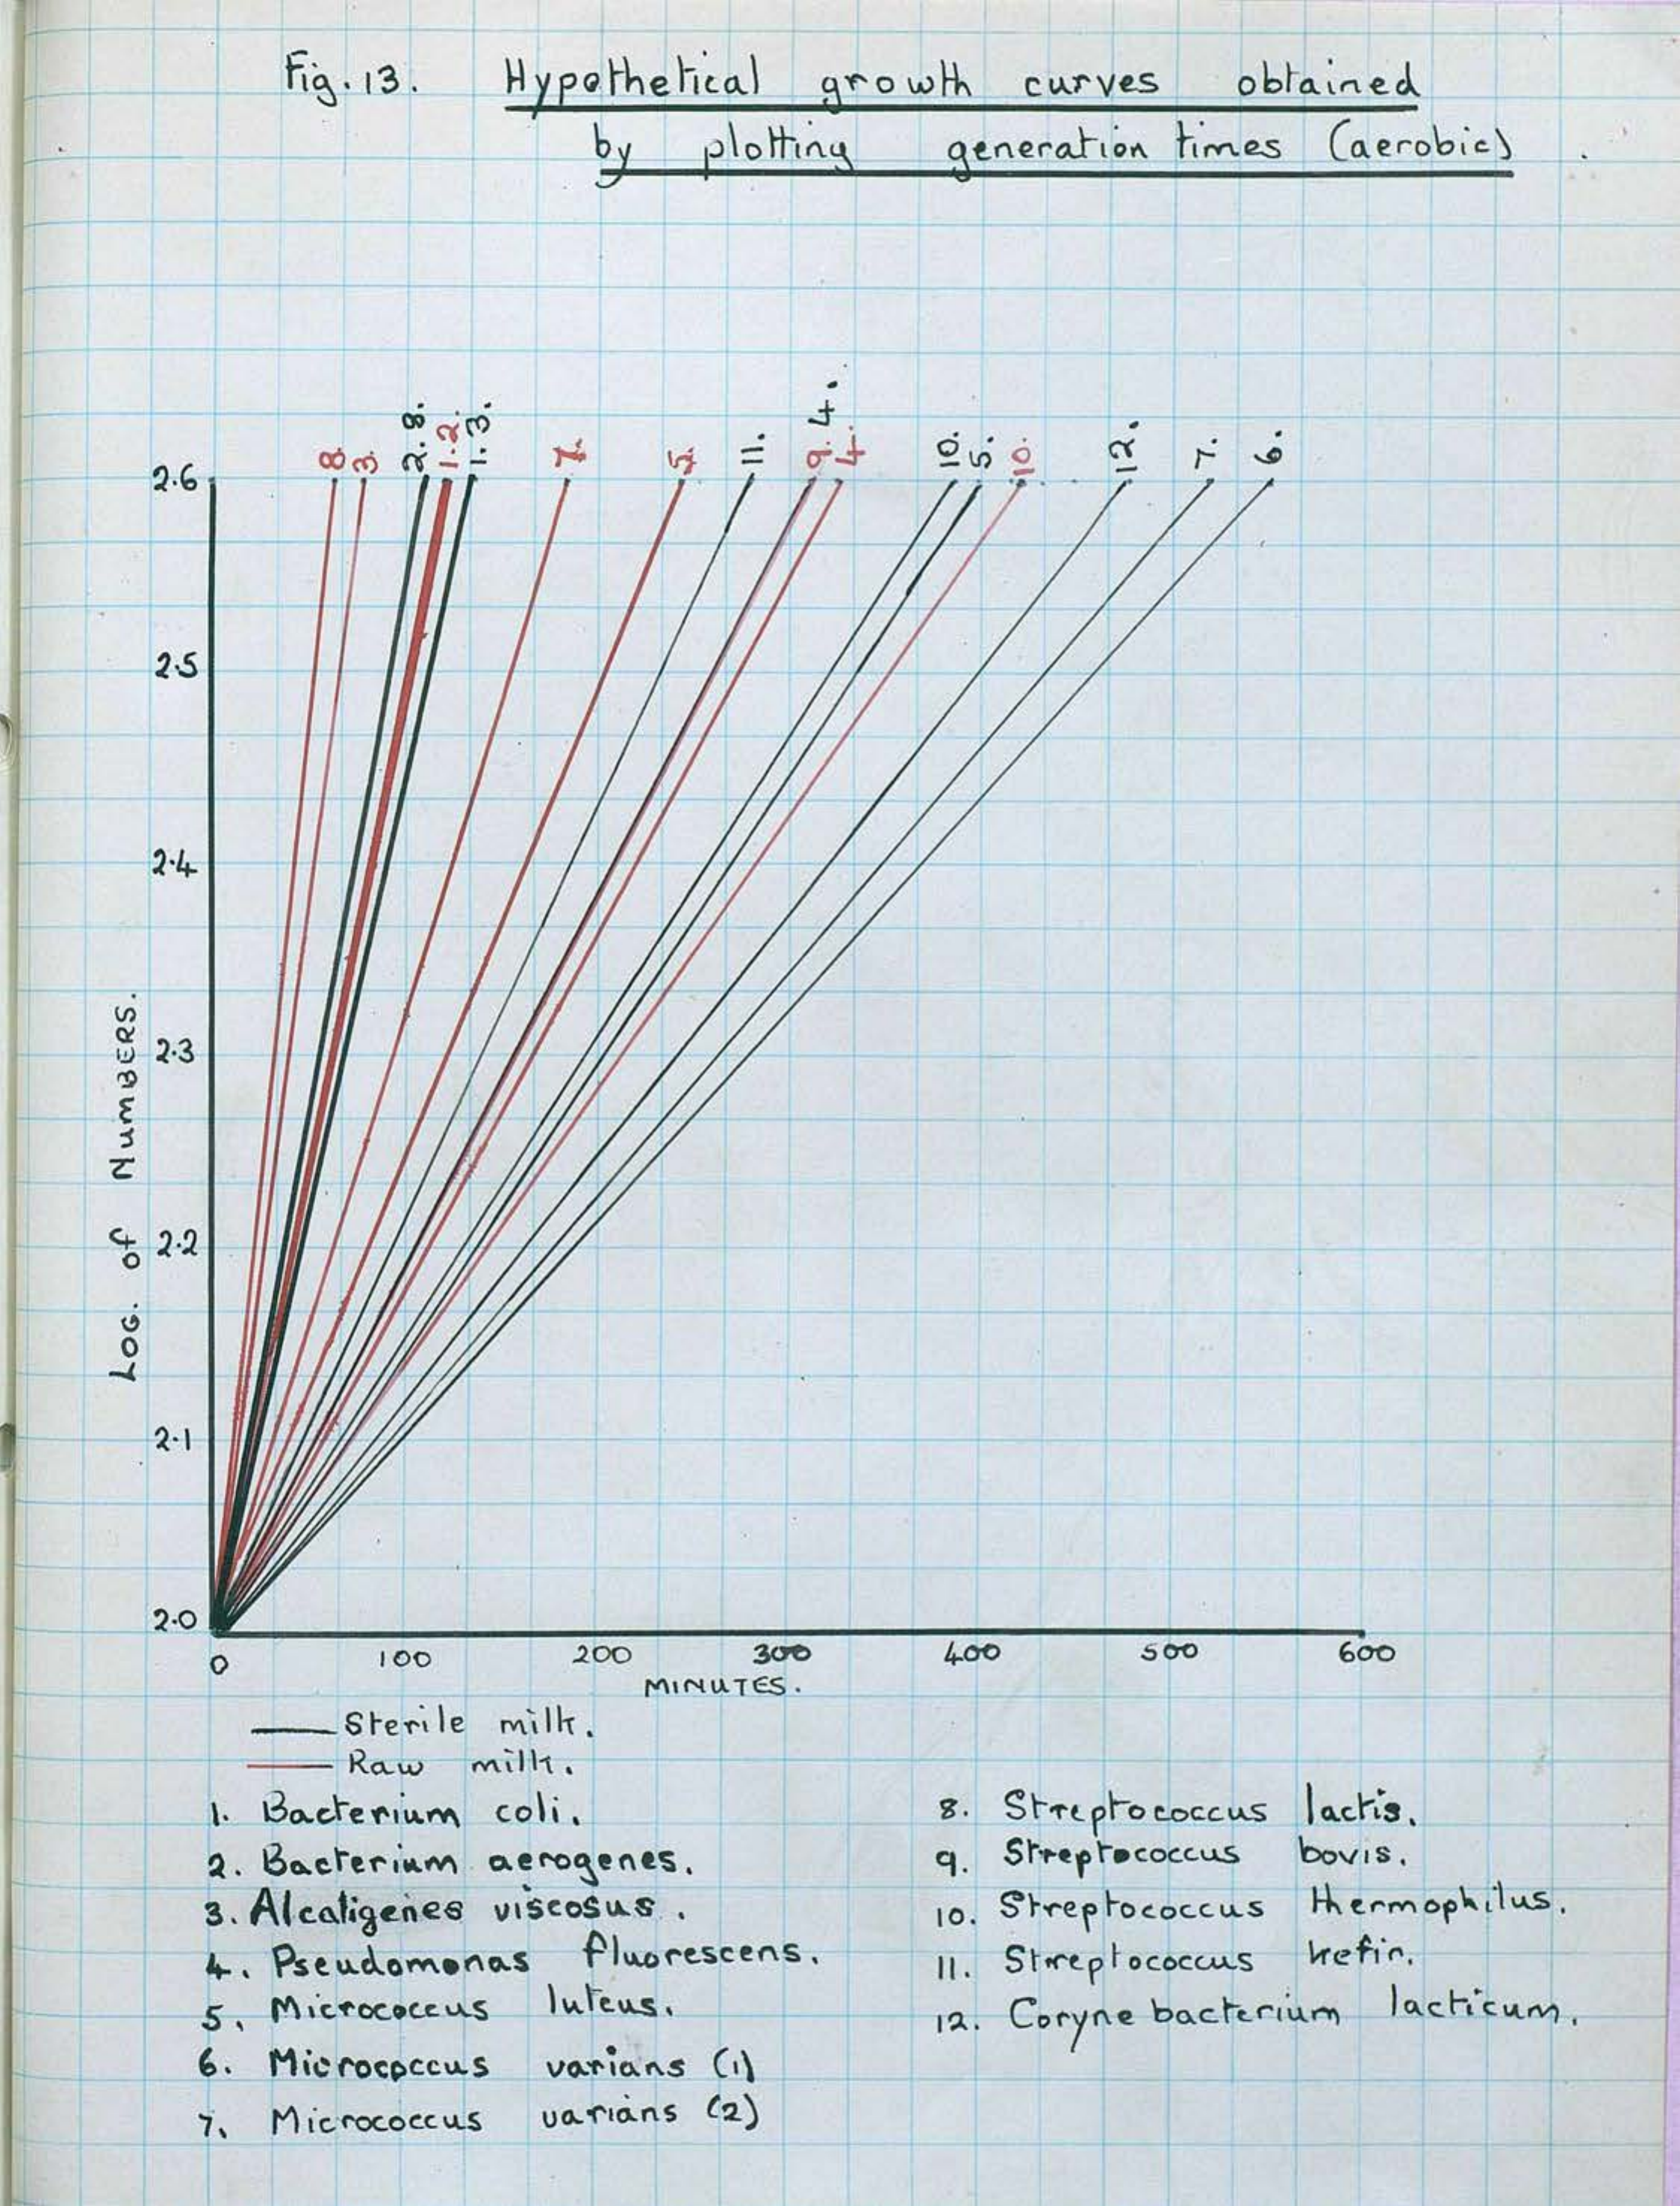 Fig. 13. Hypothetical growth curves obtained
by plotting generation times (aerobic)
8. 3. 2. 8. 1. 2. 1. 3. 7. 5. 11. 9. 4. 4. 10. 5. 10. 12. 7. 6.
2.6
2.5
2.4
2.3
2.2
2.1
2.0
LOG. of NUMBERS.
0 100 200 300 400 500 600
MINUTES.
Sterile milk.
Raw milk.
1. Bacterium coli.
2. Bacterium aerogenes.
3. Alcaligenes viscosus.
4. Pseudomonas fluorescens.
5. Micrococcus luteus.
6. Micrococcus varians (1)
7. Micrococcus varians (2)
8. Streptococcus lactis.
9. Streptococcus bovis.
10. Streptococcus thermophilus.
11. Streptococcus kefir.
12. Corynebacterium lacticum.